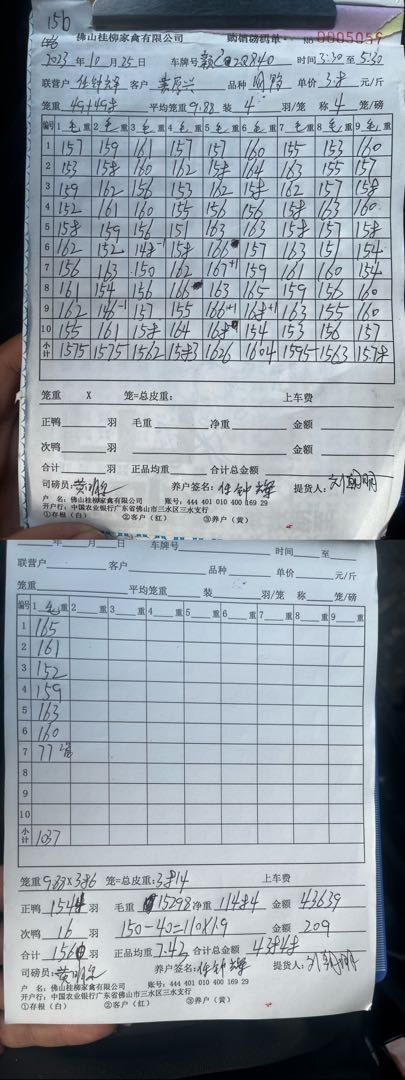 156
佛山桂柳家禽有限公司 购销磅码单 № 0005059
2023 年 10 月 25 日 车牌号 时间 3:30 至 5:30
联营户 任钟辉 客户 品种 单价 3.8 元/斤
笼重 49+49.8 平均笼重 9.88 装 4 羽/笼 称 4 笼/磅
编号 1 毛 重 2 毛 重 3 毛 重 4 毛 重 5 毛 重 6 毛 重 7 毛 重 8 毛 重 9 毛 重
1 157 159 161 157 157 160 155 153 160
2 153 158 160 162 158 164 163 155 157
3 159 162 156 153 162 158 162 157 158
4 152 161 160 155 156 156 158 163 160
5 158 159 156 151 163 163 158 157 158
6 162 152 148-1 158 166 157 163 151 154
7 156 163 150 162 167+1 159 161 160 154
8 161 154 156 166 163 165 159 156 160
9 162 146-1 157 155 166+1 168+1 163 155 160
10 155 161 158 164 168 154 153 156 157
小计 1575 1575 1562 1583 1626 1604 1595 1563 1578
笼重 X 笼=总皮重: 上车费
正鸭 羽 毛重 净重 金额
次鸭 羽 金额
合计 羽 正品均重 合计总金额
司磅员: 养户签名: 任钟辉 提货人: 刘朝明
户 名: 佛山桂柳家禽有限公司 账号: 444 401 010 400 169 29
开户行: 中国农业银行广东省佛山市三水区三水支行
①存根（白） ②客户（红） ③养户（黄）
年 月 日 车牌号 时间 至
联营户 客户 品种 单价 元/斤
笼重 平均笼重 装 羽/笼 称 笼/磅
编号 1 毛 重 2 重 3 重 4 重 5 重 6 重 7 重 8 重 9 重
1 165
2 161
3 152
4 159
5 163
6 160
7 77 2笼
8
9
10
小计 1037
笼重 9.88X386 笼=总皮重: 3814 上车费
正鸭 1544 羽 毛重 15298 净重 11484 金额 43639
次鸭 16 羽 150-40=110X1.9 金额 209
合计 1560 羽 正品均重 7.43 合计总金额 43848
司磅员: 养户签名: 任钟辉 提货人: 刘朝明
户 名: 佛山桂柳家禽有限公司 账号: 444 401 010 400 169 29
开户行: 中国农业银行广东省佛山市三水区三水支行
①存根（白） ②客户（红） ③养户（黄）